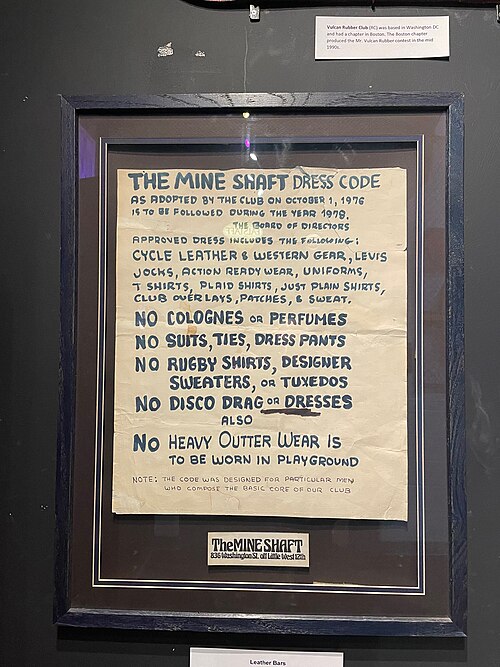 Vulcan Rubber Club (RC) was based in Washington DC
and had a chapter in Boston. The Boston chapter
produced the Mr. Vulcan Rubber contest in the mid
1990s.
THE MINE SHAFT DRESS CODE
AS ADOPTED BY THE CLUB ON OCTOBER 1, 1976
IS TO BE FOLLOWED DURING THE YEAR 1978.
THE BOARD OF DIRECTORS
APPROVED DRESS INCLUDES THE FOLLOWING:
CYCLE LEATHER & WESTERN GEAR, LEVIS
JOCKS, ACTION READY WEAR, UNIFORMS,
T SHIRTS, PLAID SHIRTS, JUST PLAIN SHIRTS,
CLUB OVERLAYS, PATCHES, & SWEAT.
NO COLOGNES OR PERFUMES
NO SUITS, TIES, DRESS PANTS
NO RUGBY SHIRTS, DESIGNER
SWEATERS, OR TUXEDOS
NO DISCO DRAG OR DRESSES
ALSO
NO HEAVY OUTTER WEAR IS
TO BE WORN IN PLAYGROUND
NOTE: THE CODE WAS DESIGNED FOR PARTICULAR MEN
WHO COMPOSE THE BASIC CORE OF OUR CLUB
The MINE SHAFT
836 Washington St. off Little West 12th
Leather Bars